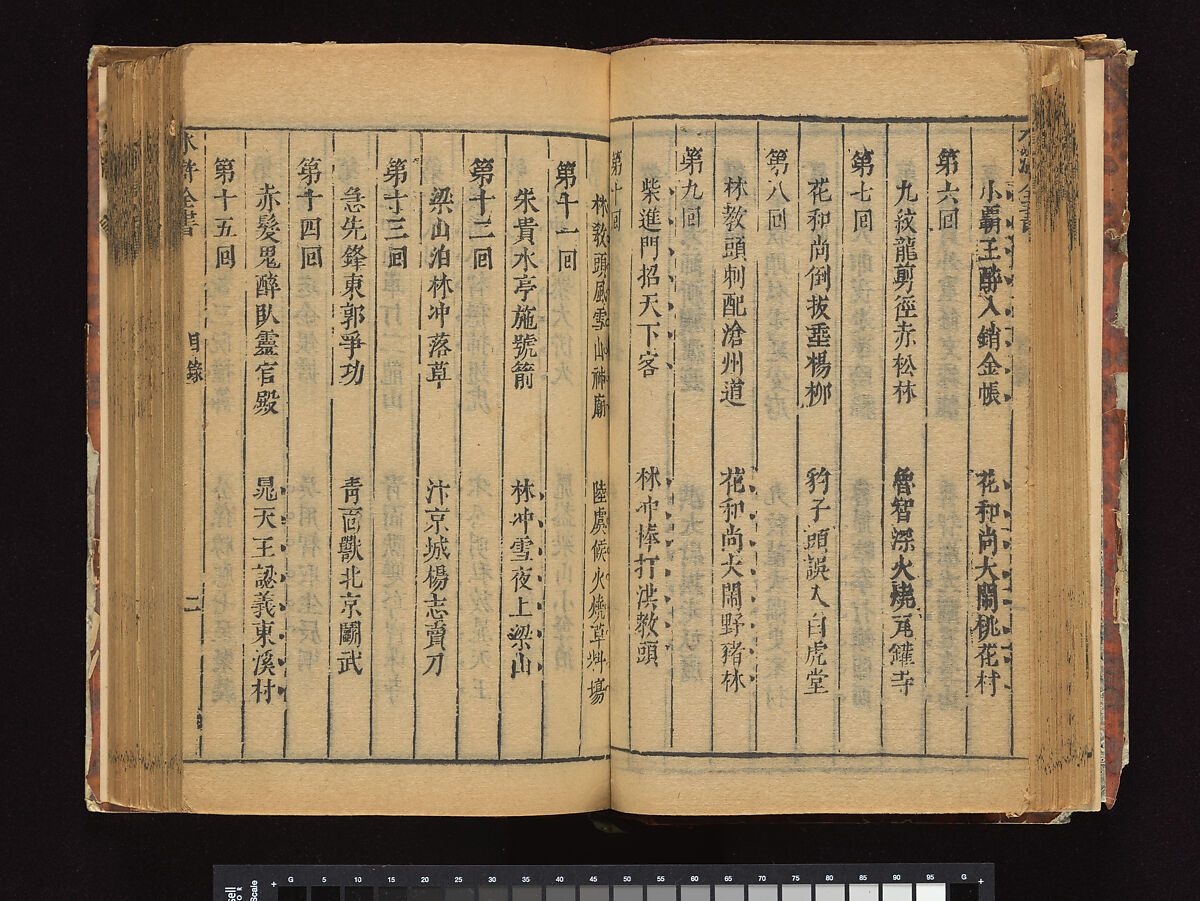 小霸王醉入銷金帳 花和尚大鬧桃花村
第六回
九紋龍剪徑赤松林 魯智深火燒瓦鑵寺
第七回
花和尚倒拔垂楊柳 豹子頭誤入白虎堂
第八回
林教頭刺配滄州道 花和尚大鬧野豬林
第九回
柴進門招天下客 林冲棒打洪教頭
第十回
林教頭風雪山神廟 陸虞候火燒草料場
第十一回
朱貴水亭施號箭 林冲雪夜上梁山
第十二回
梁山泊林冲落草 汴京城楊志賣刀
第十三回
急先鋒東郭爭功 靑面獸北京鬭武
第十四回
赤髮鬼醉臥靈官殿 晁天王認義東溪村
第十五回
水滸全書 目錄 二
G 5 10 15 20 25 30 35 40 45 50 55 60 65 70 75 80 85 90 95 G
Scale